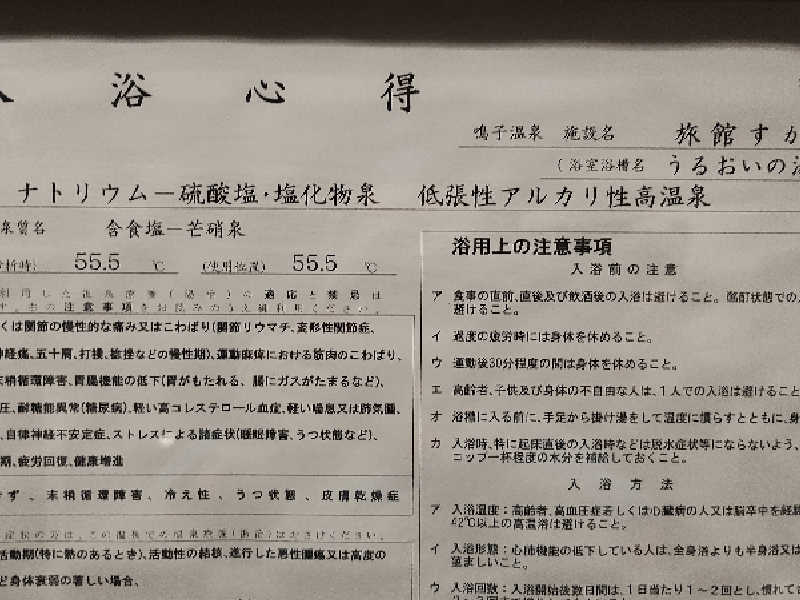 浴心得
鳴子温泉 施設名 旅館すが
(浴室浴槽名 うるおいの
ナトリウム－硫酸塩・塩化物泉 低張性アルカリ性高温泉
泉質名 含食塩－芒硝泉
分析時) 55.5 ℃ (使用位置) 55.5 ℃
くは関節の慢性的な痛み又はこわばり(関節リウマチ、変形性関節症、
神経痛、五十肩、打撲、捻挫などの慢性期)、運動麻痺における筋肉のこわばり、
末梢循環障害、胃腸機能の低下(胃がもたれる、腸にガスがたまるなど)、
圧、耐糖能異常(糖尿病)、軽い高コレステロール血症、軽い喘息又は肺気腫、
、自律神経不安定症、ストレスによる諸症状(睡眠障害、うつ状態など)、
期、疲労回復、健康増進
きず 、末梢循環障害、冷え性、うつ状態 、皮膚乾燥症
活動期(特に熱のあるとき)、活動性の結核、進行した悪性腫瘍又は高度の
ど身体衰弱の著しい場合、
浴用上の注意事項
入浴前の注意
ア 食事の直前、直後及び飲酒後の入浴は避けること。酩酊状態での
避けること。
イ 過度の疲労時には身体を休めること。
ウ 運動後30分程度の間は身体を休めること。
エ 高齢者、子供及び身体の不自由な人は、1人での入浴は避けること
オ 浴槽に入る前に、手足から掛け湯をして温度に慣らすとともに、身
カ 入浴時、特に起床直後の入浴時などは脱水症状等にならないよう、
コップ一杯程度の水分を補給しておくこと。
入浴方法
ア 入浴温度：高齢者、高血圧症若しくは心臓病の人又は脳卒中を経
42℃以上の高温浴は避けること。
イ 入浴形態：心肺機能の低下している人は、全身浴よりも半身浴又は
望ましいこと。
ウ 入浴回数：入浴開始後数日間は、1日当たり1～2回とし、慣れて